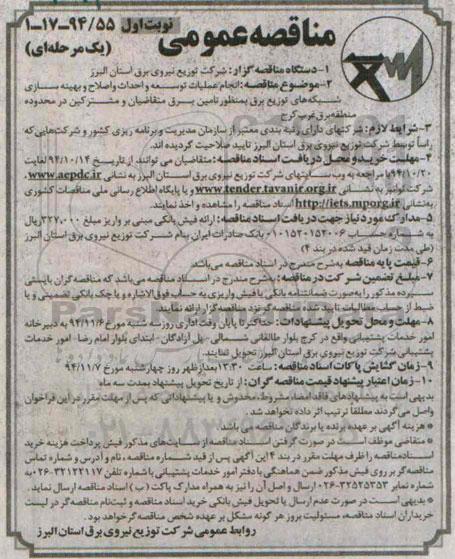 مناقصه عمومی
نوبت اول ۹۴/۵۵-۱۷-۱
(یک مرحله‌ای)
۱-دستگاه مناقصه گزار: شرکت توزیع نیروی برق استان البرز
۲-موضوع مناقصه: انجام عملیات توسعه و احداث واصلاح و بهینه سازی
شبکه‌های توزیع برق بمنظور تامین برق متقاضیان و مشترکین در محدوده
منطقه برق غرب کرج
۳-شرایط لازم: شرکتهای دارای رتبه بندی معتبر از سازمان مدیریت و برنامه ریزی کشور و شرکت‌هایی که
راسا توسط شرکت توزیع نیروی برق استان البرز تایید صلاحیت گردیده اند.
۴-مهلت خرید و محل دریافت اسناد مناقصه: متقاضیان می توانند از تاریخ ۹۴/۱۰/۱۴ لغایت
۹۴/۱۰/۲۰ با مراجعه به وب سایتهای شرکت توزیع نیروی برق استان البرز به نشانی www.aepdc.ir
شرکت توانیر به نشانی www.tender.tavanir.org.ir و یا پایگاه اطلاع رسانی ملی مناقصات کشوری
به نشانی http://iets.mporg.ir اسناد مناقصه را مشاهده و اخذ نمایند.
۵-مدارک مورد نیاز جهت دریافت اسناد مناقصه: ارائه فیش بانکی مبنی بر واریز مبلغ ۳۲۷،۰۰۰ ریال
به شماره حساب ۰۱۰۱۵۲۰۱۵۲۰۰۶ بانک صادرات ایران بنام شرکت توزیع نیروی برق استان البرز
(طی مدت زمان قید شده در بند ۴)
۶-قیمت پایه مناقصه به شرح مندرج در اسناد مناقصه می‌باشد.
۷-مبلغ تضمین شرکت در مناقصه: به شرح مندرج در اسناد مناقصه می‌باشد که مناقصه گران بایستی
سپرده مذکور را به صورت ضمانتنامه بانکی یا فیش واریزی به حساب فوق الاشاره و یا چک بانکی تضمینی و یا
ضبط از محل مطالبات تایید شده، مناقصه گر نزد مناقصه گزار ارائه نمایند.
۸-مهلت و محل تحویل پیشنهادات: حداکثر تا پایان وقت اداری روز سه شنبه مورخ ۹۴/۱۱/۶ به دبیرخانه
امور خدمات پشتیبانی واقع در کرج بلوار طالقانی شمالی- پل آزادگان- ابتدای بلوار امام رضا- امور خدمات
پشتیبانی شرکت توزیع نیروی برق استان البرز تحویل نمایند.
۹-زمان گشایش پاکات اسناد مناقصه: ساعت ۱۳:۳۰ بعدازظهر روز چهارشنبه مورخ ۹۴/۱۱/۷
۱۰-زمان اعتبار پیشنهاد قیمت مناقصه گران: از تاریخ تحویل پیشنهاد بمدت سه ماه
بدیهی است به پیشنهادهای فاقد امضاء، مشروط، مخدوش و یا پیشنهاداتی که پس از مهلت مقرر در این فراخوان
واصل می گردند مطلقا ترتیب اثر داده نخواهد شد.
* هزینه آگهی بر عهده برنده یا برندگان مناقصه می باشد.
* متقاضی موظف است در صورت گرفتن اسناد مناقصه از سایت‌های مذکور فیش پرداخت هزینه خرید
اسناد مناقصه را ظرف مهلت مقرر در بند ۴ این آگهی پس از قید شماره مناقصه، نام و آدرس و شماره تماس
مناقصه گر بر روی فیش مذکور ضمن هماهنگی با دفتر امور خدمات پشتیبانی با شماره تلفن ۰۲۶-۳۲۱۲۲۱۱۷ به
شماره نمابر ۰۲۶-۳۲۵۲۵۳۵۳ ارسال و اصل آن را نیز به همراه مدارک پاکت (ب) اسناد مناقصه ارسال نماید.
* بدیهی است در صورت عدم ارسال یا تحویل فیش بانکی خرید اسناد مناقصه و ثبت نام مناقصه گر در لیست
خریداران اسناد مناقصه، مسئولیت بروز هر گونه مشکل بر عهده شخص مناقصه گر خواهد بود.
روابط عمومی شرکت توزیع نیروی برق استان البرز